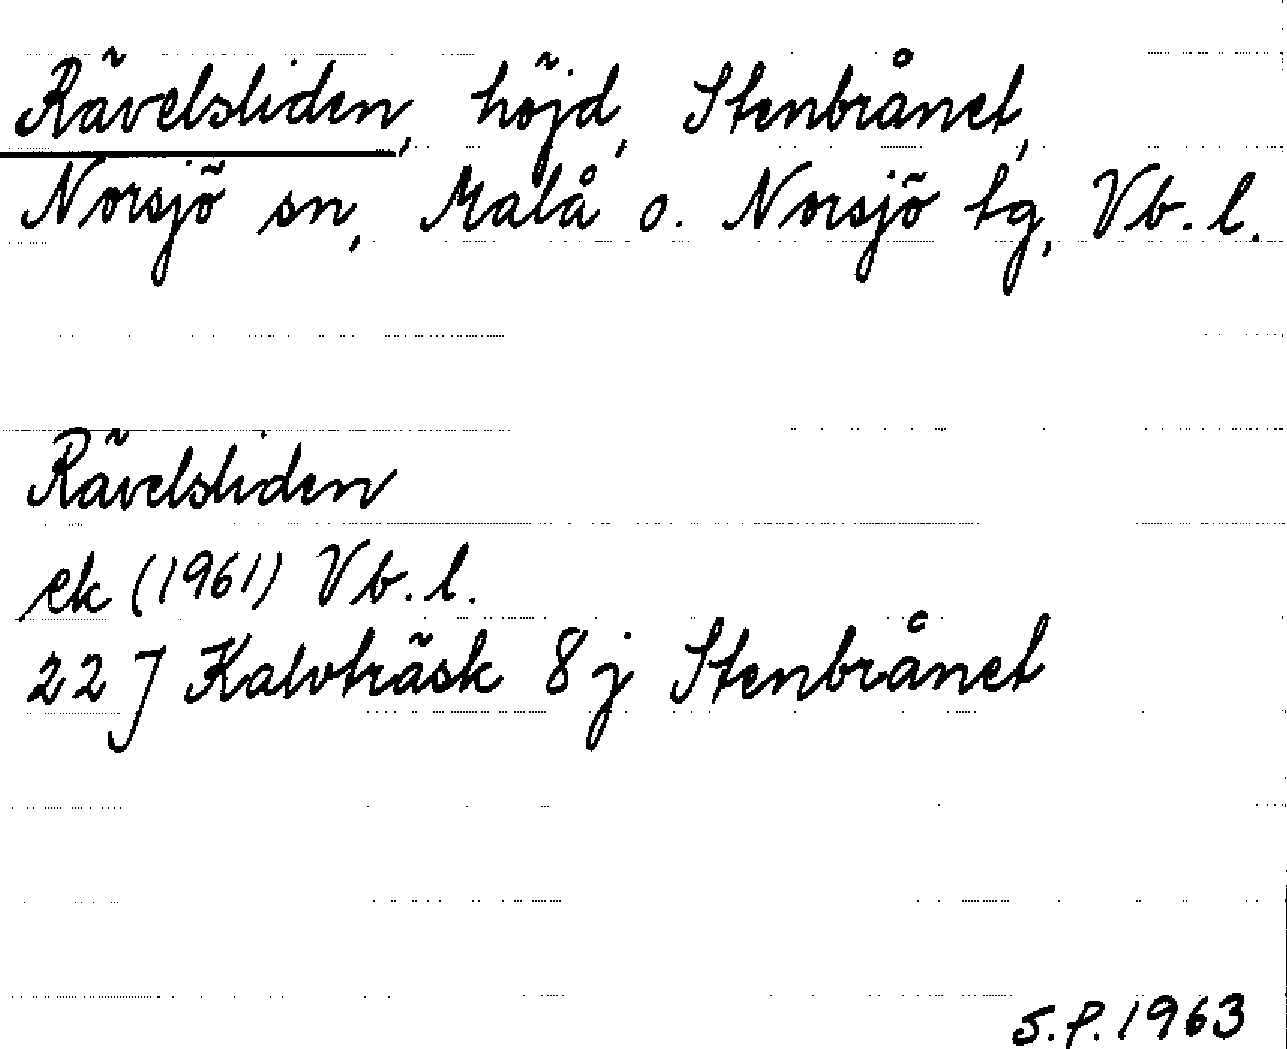 Rävelsliden, höjd, Stenbrånet,
Norsjö sn, Malå o. Norsjö tg, Vb. l.
Rävelsliden
ek (1961) Vb. l.
22 J Kalvträsk 8 j Stenbrånet
S.P. 1963